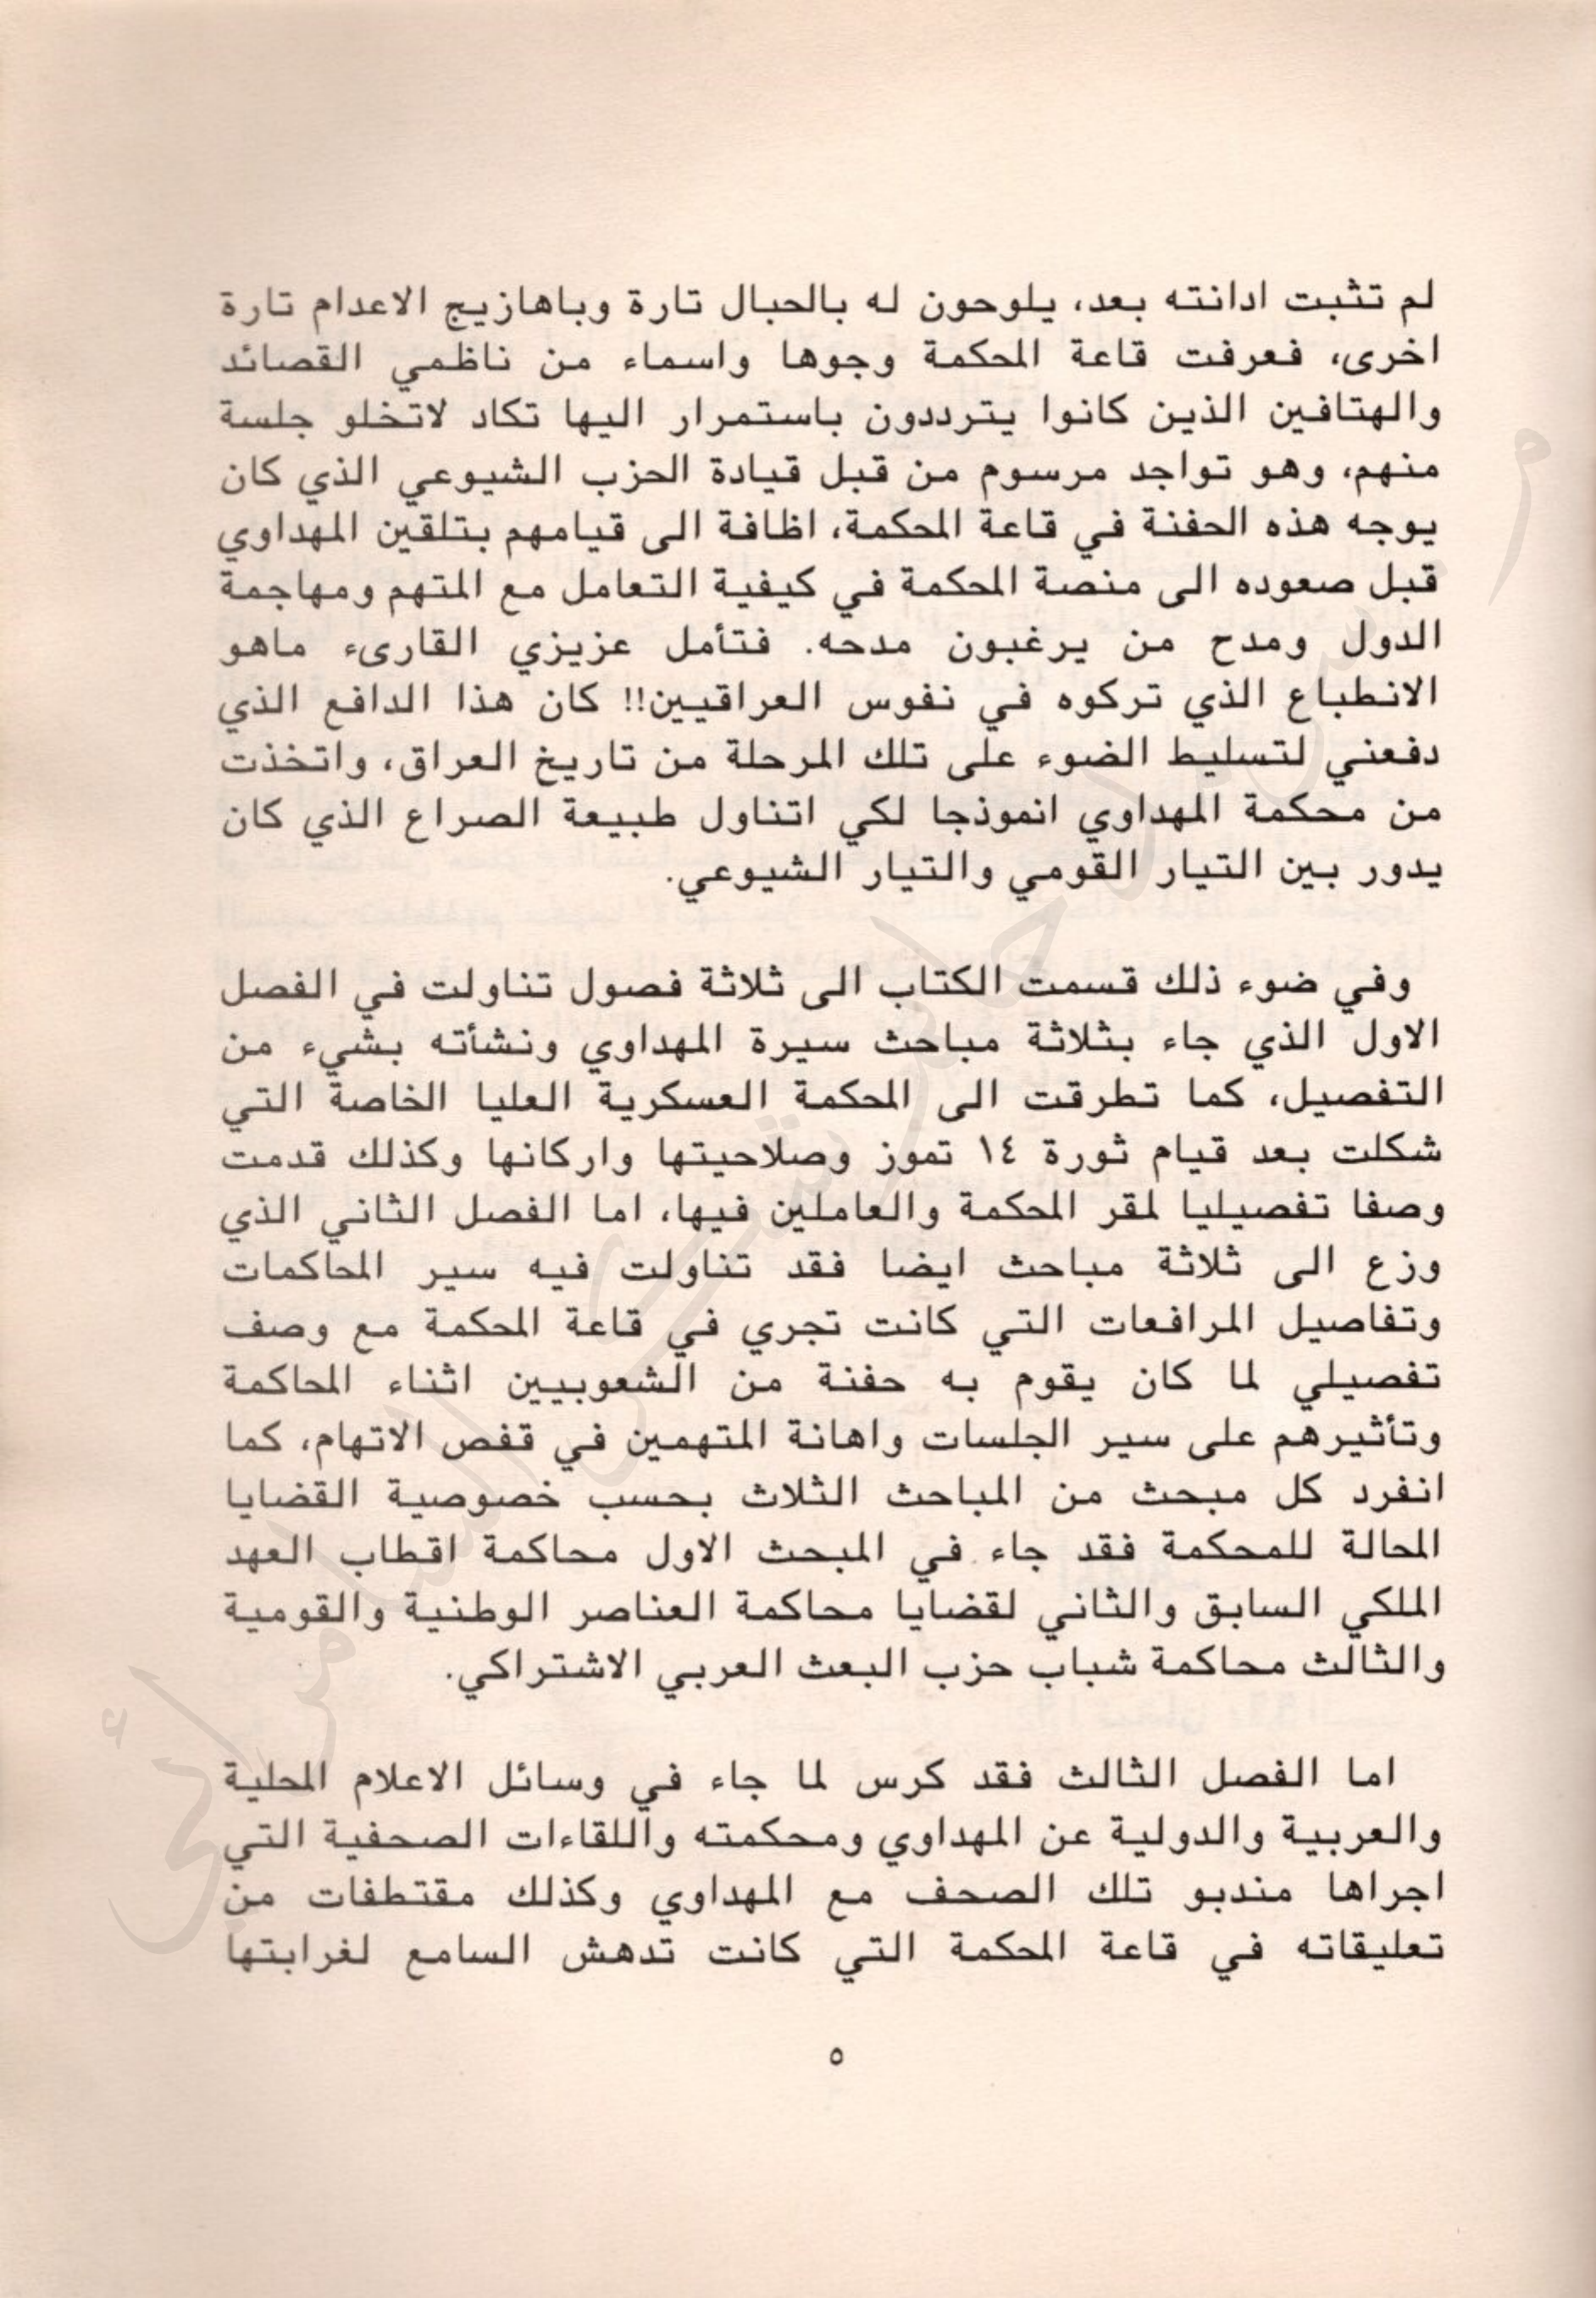 لم تثبت ادانته بعد، يلوحون له بالحبال تارة وباهازيج الاعدام تارة
اخرى، فعرفت قاعة المحكمة وجوها واسماء من ناظمي القصائد
والهتافين الذين كانوا يترددون باستمرار اليها تكاد لاتخلو جلسة
منهم، وهو تواجد مرسوم من قبل قيادة الحزب الشيوعي الذي كان
يوجه هذه الحفنة في قاعة المحكمة، اظافة الى قيامهم بتلقين المهداوي
قبل صعوده الى منصة المحكمة في كيفية التعامل مع المتهم ومهاجمة
الدول ومدح من يرغبون مدحه. فتأمل عزيزي القارىء ماهو
الانطباع الذي تركوه في نفوس العراقيين!! كان هذا الدافع الذي
دفعني لتسليط الضوء على تلك المرحلة من تاريخ العراق، واتخذت
من محكمة المهداوي انموذجا لكي اتناول طبيعة الصراع الذي كان
يدور بين التيار القومي والتيار الشيوعي.
وفي ضوء ذلك قسمت الكتاب الى ثلاثة فصول تناولت في الفصل
الاول الذي جاء بثلاثة مباحث سيرة المهداوي ونشأته بشيء من
التفصيل، كما تطرقت الى المحكمة العسكرية العليا الخاصة التي
شكلت بعد قيام ثورة ١٤ تموز وصلاحيتها واركانها وكذلك قدمت
وصفا تفصيليا لمقر المحكمة والعاملين فيها، اما الفصل الثاني الذي
وزع الى ثلاثة مباحث ايضا فقد تناولت فيه سير المحاكمات
وتفاصيل المرافعات التي كانت تجري في قاعة المحكمة مع وصف
تفصيلي لما كان يقوم به حفنة من الشعوبيين اثناء المحاكمة
وتأثيرهم على سير الجلسات واهانة المتهمين في قفص الاتهام، كما
انفرد كل مبحث من المباحث الثلاث بحسب خصوصية القضايا
المحالة للمحكمة فقد جاء في المبحث الاول محاكمة اقطاب العهد
الملكي السابق والثاني لقضايا محاكمة العناصر الوطنية والقومية
والثالث محاكمة شباب حزب البعث العربي الاشتراكي.
اما الفصل الثالث فقد كرس لما جاء في وسائل الاعلام المحلية
والعربية والدولية عن المهداوي ومحكمته واللقاءات الصحفية التي
اجراها مندبو تلك الصحف مع المهداوي وكذلك مقتطفات من
تعليقاته في قاعة المحكمة التي كانت تدهش السامع لغرابتها
٥